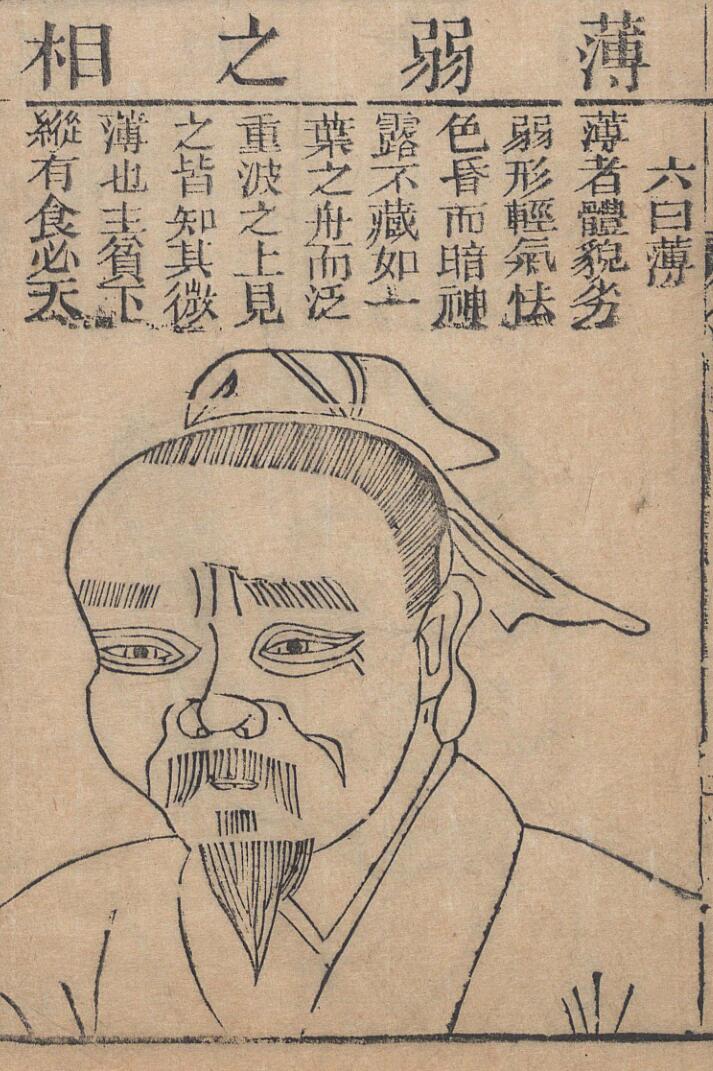 薄弱之相
六曰薄
薄者體貌劣
弱形輕氣怯
色昏而暗神
露不藏如一
葉之舟而泛
重波之上見
之皆知其微
薄也主貧下
縱有食必夭